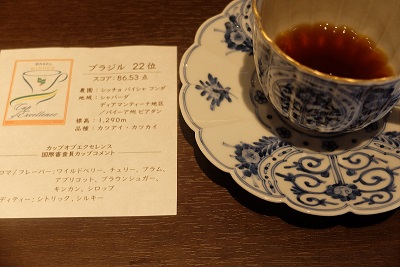 Cup of Excellence
ブラジル 22位
スコア: 86.53 点
農園: シッチョ バイシャ フンダ
地域: シャパーダ
ディアマンティーナ地区
/バイーア州 ピアタン
標高: 1,290m
品種: カツアイ・カツカイ
カップオブエクセレンス
国際審査員カップコメント
ロマ/フレーバー: ワイルドベリー、チェリー、プラム、
アプリコット、ブラウンシュガー、
キンカン、シロップ
ディティー: シトリック、シルキー